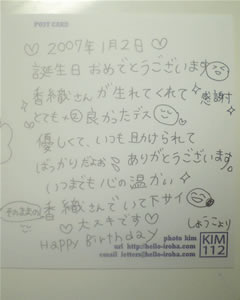 POST CARD
♡2007年1月2日♡
誕生日おめでとうございます
香織さんが生れてくれて
感謝す
とても良かったデス
優しくて、いつも助けられて
ばっかりだよぉ ありがとうございます。
いつまでも心の温かい
そのままの
香織さんでいて下サイ
♡大スキです♡
Happy Birthday
しょうこより
photo kim
url http://hello-iroha.com
email letters@hello-iroha.com
KIM
112